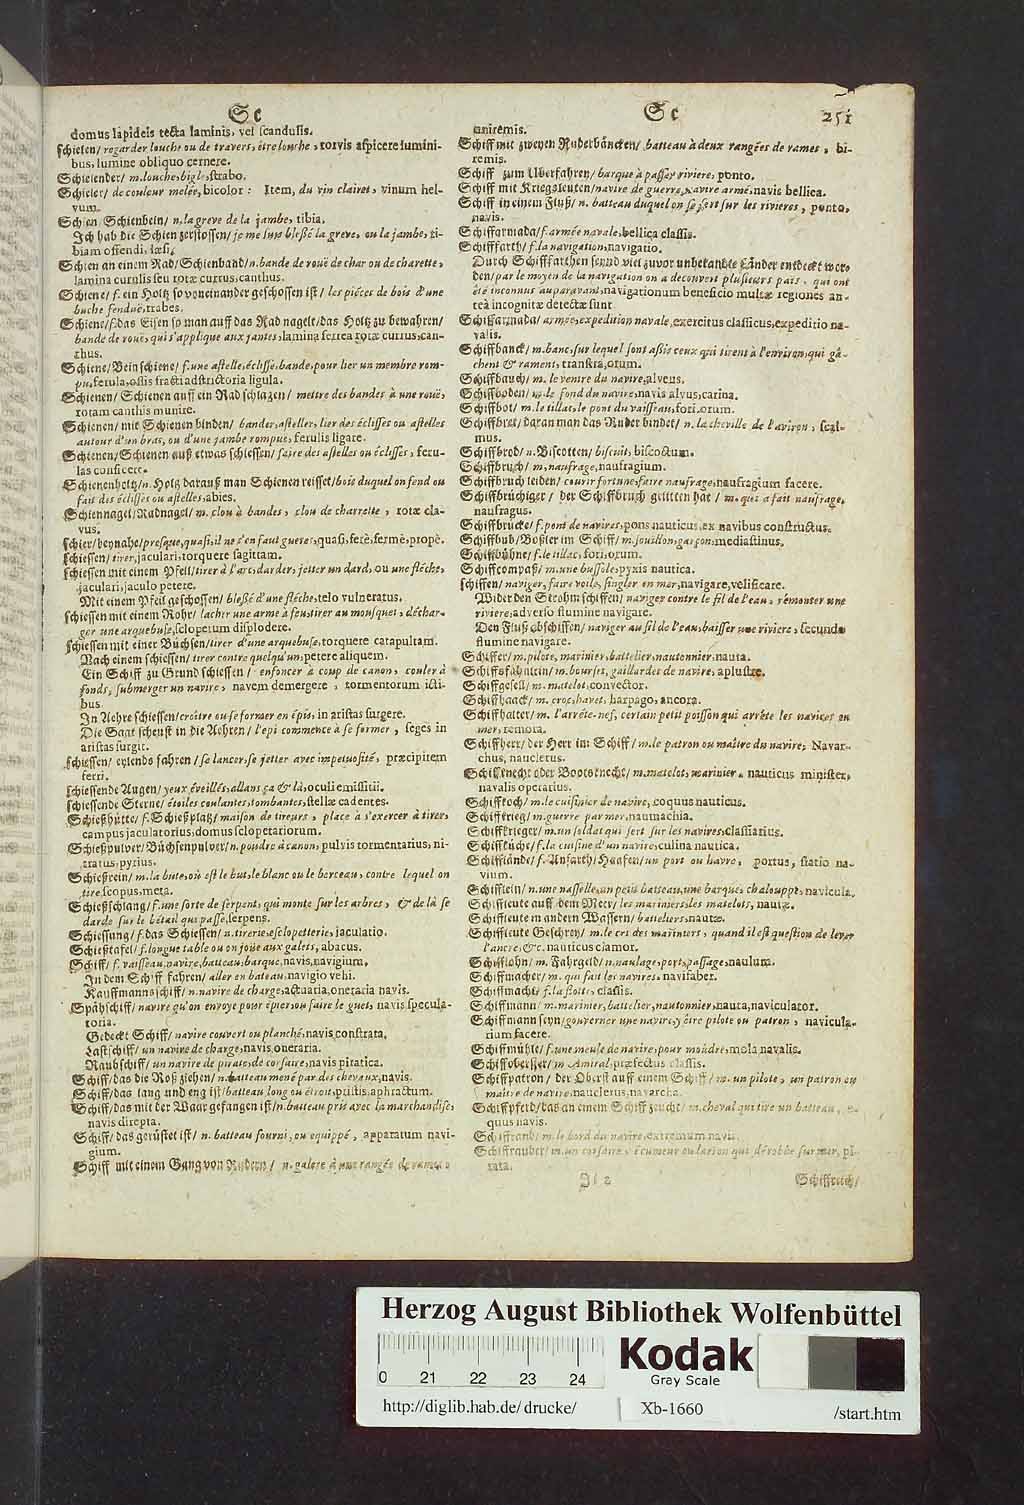 Sc
domus lapideis tecta laminis, vel scandulis.
schielen/ regarder louche ou de travers, être louche, torvis aspicere lumini-
bus, lumine obliquo cernere.
Schielender/ m. louche, bigle, strabo.
Schieler/ de couleur melée, bicolor: Item, du vin clairet, vinum hel-
vum.
Schien/ Schienbein/ n. la greve de la jambe, tibia.
Ich hab die Schien zerstossen/ je me suis blessé la greve, ou la jambe, ti-
biam offendi, læsi.
Schien an einem Rad/ Schienband/ n. bande de rouë de char ou de charette,
lamina curulis seu rotæ currus, canthus.
Schiene/ f. ein Holtz so voneinander geschossen ist/ les piéces de bois d'une
buche fenduë, trabes.
Schiene/ f. das Eisen so man auff das Rad nagelt/ das Holtz zu bewahren/
bande de rouë, qui s'applique aux jantes, lamina ferrea rotæ currus, can-
thus.
Schiene/ Beinschiene/ f. une astelle, éclisse, bande, pour lier un membre rom-
pu, ferula, ossis fracti adstrictoria ligula.
Schienen/ Schienen auff ein Rad schlagen/ mettre des bandes à une rouë,
rotam canthis munire.
Schienen/ mit Schienen binden/ bander, asteller, lier des éclisses ou astelles
autour d'un bras, ou d'une jambe rompuë, ferulis ligare.
Schienen/ Schienen auß etwas schiessen/ faire des astelles ou éclisses, feru-
las conficere.
Schienenholtz/ n. Holtz darauß man Schienen reisset/ bois duquel on fend ou
fait des éclisses ou astelles, abies.
Schiennagel/ Radnagel/ m. clou à bandes, clou de charrette, rotæ cla-
vus.
schier/ beynahe/ presque, quasi, il ne s'en faut gueres, quasi, ferè, fermè, propè.
schiessen/ tirer, jaculari, torquere sagittam.
schiessen mit einem Pfeil/ tirer à l'arc, darder, jetter un dard, ou une fléche,
jaculari, jaculo petere.
Mit einem Pfeil geschossen/ blessé d'une fléche, telo vulneratus.
schiessen mit einem Rohr/ lacher une arme à feu, tirer au mousquet, déchar-
ger une arquebuse, sclopetum displodere.
schiessen mit einer Büchsen/ tirer d'une arquebuse, torquere catapultam.
Nach einem schiessen/ tirer contre quelqu'un, petere aliquem.
Ein Schiff zu Grund schiessen/ enfoncer à coup de canon, couler à
fonds, submerger un navire, navem demergere, tormentorum icti-
bus.
In Aehre schiessen/ croître ou se former en épis, in aristas surgere.
Die Saat scheust in die Aehren/ l'epi commence à se former, seges in
aristas surgit.
schiessen/ eylends fahren/ se lancer, se jetter avec impetuosité, præcipitem
ferri.
schiessende Augen/ yeux éveillés, allans ça & là, oculi emissitii.
schiessende Sterne/ étoiles coulantes, tombantes, stellæ cadentes.
Schießhütte/ f. Schießplatz/ maison de tireurs, place à s'exercer à tirer,
campus jaculatorius, domus sclopetariorum.
Schießpulver/ Büchsenpulver/ n. poudre à canon, pulvis tormentarius, ni-
tratus, pyrius.
Schießrein/ m. la bute, où est le but, le blanc ou le berceau, contre lequel on
tire, scopus, meta.
Schießschlang/ f. une sorte de serpent, qui monte sur les arbres, & de là se
darde sur le bétail qui passe, serpens.
Schiessung/ f. das Schiessen/ n. tirerie, esclopetterie, jaculatio.
Schießtafel/ f. longue table ou on joüe aux galets, abacus.
Schiff/ f. vaisseau, navire, batteau, barque, navis, navigium.
In dem Schiff fahren/ aller en bateau, navigio vehi.
Kauffmannsschiff/ n. navire de charge, actuaria, oneraria navis.
Spähschiff/ navire qu'on envoye pour épier, ou faire le guet, navis specula-
toria.
Gedeckt Schiff/ navire couvert ou planché, navis constrata.
Lastschiff/ un navire de charge, navis oneraria.
Raubschiff/ un navire de pirate, de corsaire, navis piratica.
Schiff/ das die Roß ziehen/ n. batteau mené par des chevaux, navis.
Schiff/ das lang und eng ist/ batteau long ou étroit, pristis, aphractum.
Schiff/ das mit der Waar gefangen ist/ n. batteau pris avec la marchandise,
navis direpta.
Schiff/ das gerüstet ist/ n. batteau fourni, ou equippé, apparatum navi-
gium.
Schiff mit einem Gang von Rudern/ n. galere à une rangée de rames,
Sc 251
uniremis.
Schiff mit zweyen Ruderbäncken/ batteau à deux rangées de rames, bi-
remis.
Schiff zum Uberfahren/ barque à passer riviere, ponto.
Schiff mit Kriegsleuten/ navire de guerre, navire armé, navis bellica.
Schiff in einem Fluß/ n. batteau duquel on se sert sur les rivieres, ponto,
navis.
Schiffarmada/ f. armée navale, bellica classis.
Schiffarth/ f. la navigation, navigatio.
Durch Schiffarthen seynd viel zuvor unbekannte Länder entdeckt wor-
den/ par le moyen de la navigation on a decouvert plusieurs païs, qui ont
été inconnus auparavant, navigationum beneficio multæ regiones an-
teà incognitæ detectæ sunt.
Schiffarmada/ armée, expedition navale, exercitus classicus, expeditio na-
valis.
Schiffbanck/ m. banc, sur lequel sont assis ceux qui tirent à l'environ, qui gâ-
chent & rament, transtra, orum.
Schiffbauch/ m. le ventre du navire, alveus.
Schiffboden/ m. le fond du navire, navis alvus, carina.
Schiffbot/ m. le tillac, le pont du vaisseau, fori, orum.
Schiffbret/ daran man das Ruder bindet/ n. la cheville de l'aviron, scal-
mus.
Schiffbrod/ n. Biscotten/ biscuit, biscoctum.
Schiffbruch/ m. naufrage, naufragium.
Schiffbruch leiden/ courir fortune, faire naufrage, naufragium facere.
Schiffbrüchiger/ der Schiffbruch gelitten hat/ m. qui a fait naufrage,
naufragus.
Schiffbrücke/ f. pont de navires, pons nauticus, ex navibus constructus.
Schiffbub/ Boßler im Schiff/ m. souillon, garçon, mediastinus.
Schiffbühne/ f. le tillac, fori, orum.
Schiffcompaß/ m. une bussole, pyxis nautica.
schiffen/ naviger, faire voile, singler en mer, navigare, velificare.
Wider den Strohm schiffen/ naviger contre le fil de l'eau, remonter une
riviere, adverso flumine navigare.
Den Fluß abschiffen/ naviger au fil de l'eau, baisser une riviere, secundo
flumine navigare.
Schiffer/ m. pilote, marinier, battelier, nautonnier, nauta.
Schiffsfähnlein/ m. bourset, gaillardet de navire, aplustre.
Schiffgesell/ m. matelot, convector.
Schiffhaack/ m. croc, havet, harpago, ancora.
Schiffhalter/ m. l'arrête-nef, certain petit poisson qui arrête les navires en
mer, remora.
Schiffherr/ der Herr im Schiff/ m. le patron ou maître du navire, Navar-
chus, nauclerus.
Schiffknecht oder Bootsknecht/ m. matelot, marinier. nauticus minister,
navalis operarius.
Schiffkoch/ m. le cuisinier de navire, coquus nauticus.
Schiffkrieg/ m. guerre par mer, naumachia.
Schiffkrieger/ m. un soldat qui sert sur les navires, classiarius.
Schiffküche/ f. la cuisine d'un navire, culina nautica.
Schifflände/ f. Anfarth/ Haafen/ un port ou havre, portus, statio na-
vium.
Schifflein/ n. une nasselle, un petit batteau, une barque, chalouppe, navicula.
Schiffleute auff dem Meer/ les mariniers, les matelots, nautæ.
Schiffleute in andern Wassern/ batteliers, nautæ.
Schiffleute Geschrey/ m. le cri des mariniers, quand il est question de lever
l'ancre, &c. nauticus clamor.
Schifflohn/ m. Fahrgeld/ n. naulage, port, passage, naulum.
Schiffmacher/ m. qui fait les navires, navifaber.
Schiffmacht/ f. la flotte, classis.
Schiffmann/ m. marinier, battelier, nautonnier, nauta, naviculator.
Schiffmann seyn/ gouverner une navire, y être pilote ou patron, navicula-
rium facere.
Schiffmühle/ f. une meule de navire, pour moudre, mola navalis.
Schiffoberster/ m. Amiral, præfectus classis.
Schiffpatron/ der Oberst auff einem Schiff/ m. un pilote, un patron ou
maître de navire, nauclerus, navarcha.
Schiffpferd/ das an einem Schiff zeucht/ m. cheval qui tire un batteau, e-
quus navis.
Schiffrand/ m. le bord du navire, extremum navis.
Schiffrauber/ m. un corsaire, écumeur ou larron qui dérobbe sur mer, pi-
rata.
Ji 2 Schiffreich/
Herzog August Bibliothek Wolfenbüttel
0 21 22 23 24
Kodak
Gray Scale
http://diglib.hab.de/drucke/ Xb-1660 /start.htm